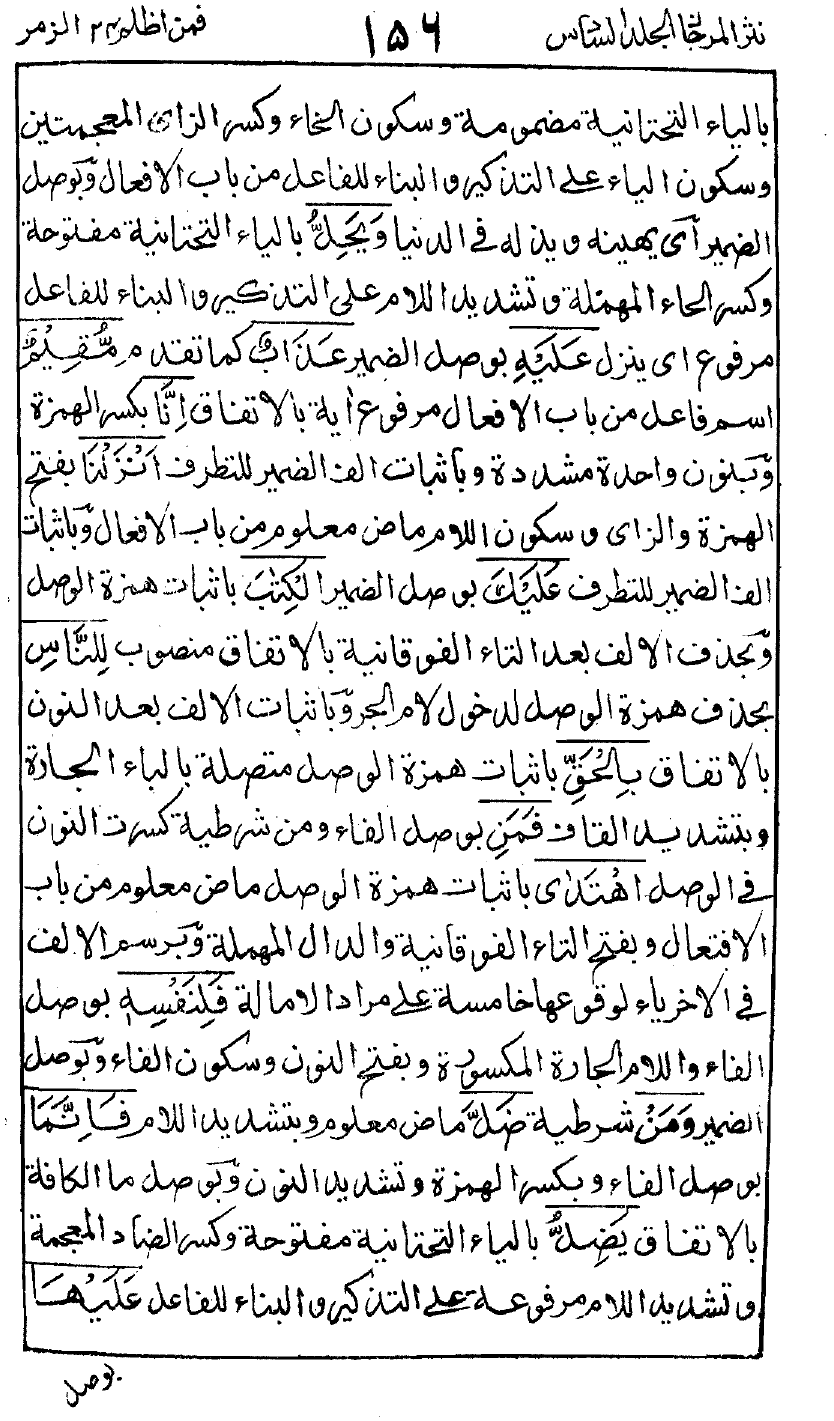 نثر المرجان الجلد السادس ١٥٦ فمن اظلم ٢٤ الزمر
بالياء التحتانية مضمومة وسكون الخاء وكسر الزاى المعجمتين
وسكون الياء على التذكير والبناء للفاعل من باب الافعال وبوصل
الضمير آى يهينه ويذله فى الدنيا وَيَحِلُّ بالياء التحتانية مفتوحة
وكسر الحاء المهملة وتشديد اللام على التذكير والبناء للفاعل
مرفوع اى ينزل عَلَيْهِ بوصل الضمير عَذَابٌ كما تقدم مُّقِيْمٌ
اسم فاعل من باب الافعال مرفوع اٰية بالاتفاق اِنَّا بكسر الهمزة
وبنون واحدة مشددة وباثبات الف الضمير للتطرف اَنْزَلْنَا بفتح
الهمزة والزاى وسكون اللام ماض معلوم من باب الافعال وباثبات
الف الضمير للتطرف عَلَيْكَ بوصل الضمير الْكِتٰبَ باثبات همزة الوصل
وبحذف الالف بعد التاء الفوقانية بالاتفاق منصوب لِلنَّاسِ
بحذف همزة الوصل لدخول لام الجر وباثبات الالف بعد النون
بالاتفاق بِالْحَقِّ باثبات همزة الوصل متصلة بالباء الجارة
وبتشديد القاف فَمَنِ بوصل الفاء ومن شرطية كسرت النون
فى الوصل اهْتَدٰى باثبات همزة الوصل ماض معلوم من باب
الافتعال وبفتح التاء الفوقانية والدال المهملة وبرسم الالف
فى الاخر ياء لوقوعها خامسة على مراد الامالة فَلِنَفْسِهٖ بوصل
الفاء واللام الجارة المكسورة وبفتح النون وسكون الفاء وبوصل
الضمير وَمَنْ شرطية ضَلَّ ماض معلوم وبتشديد اللام فَاِنَّمَا
بوصل الفاء وبكسر الهمزة وتشديد النون وبوصل ما الكافة
بالاتفاق يَضِلُّ بالياء التحتانية مفتوحة وكسر الضاد المعجمة
وتشديد اللام مرفوعة على التذكير والبناء للفاعل عَلَيْهَا
بوصل